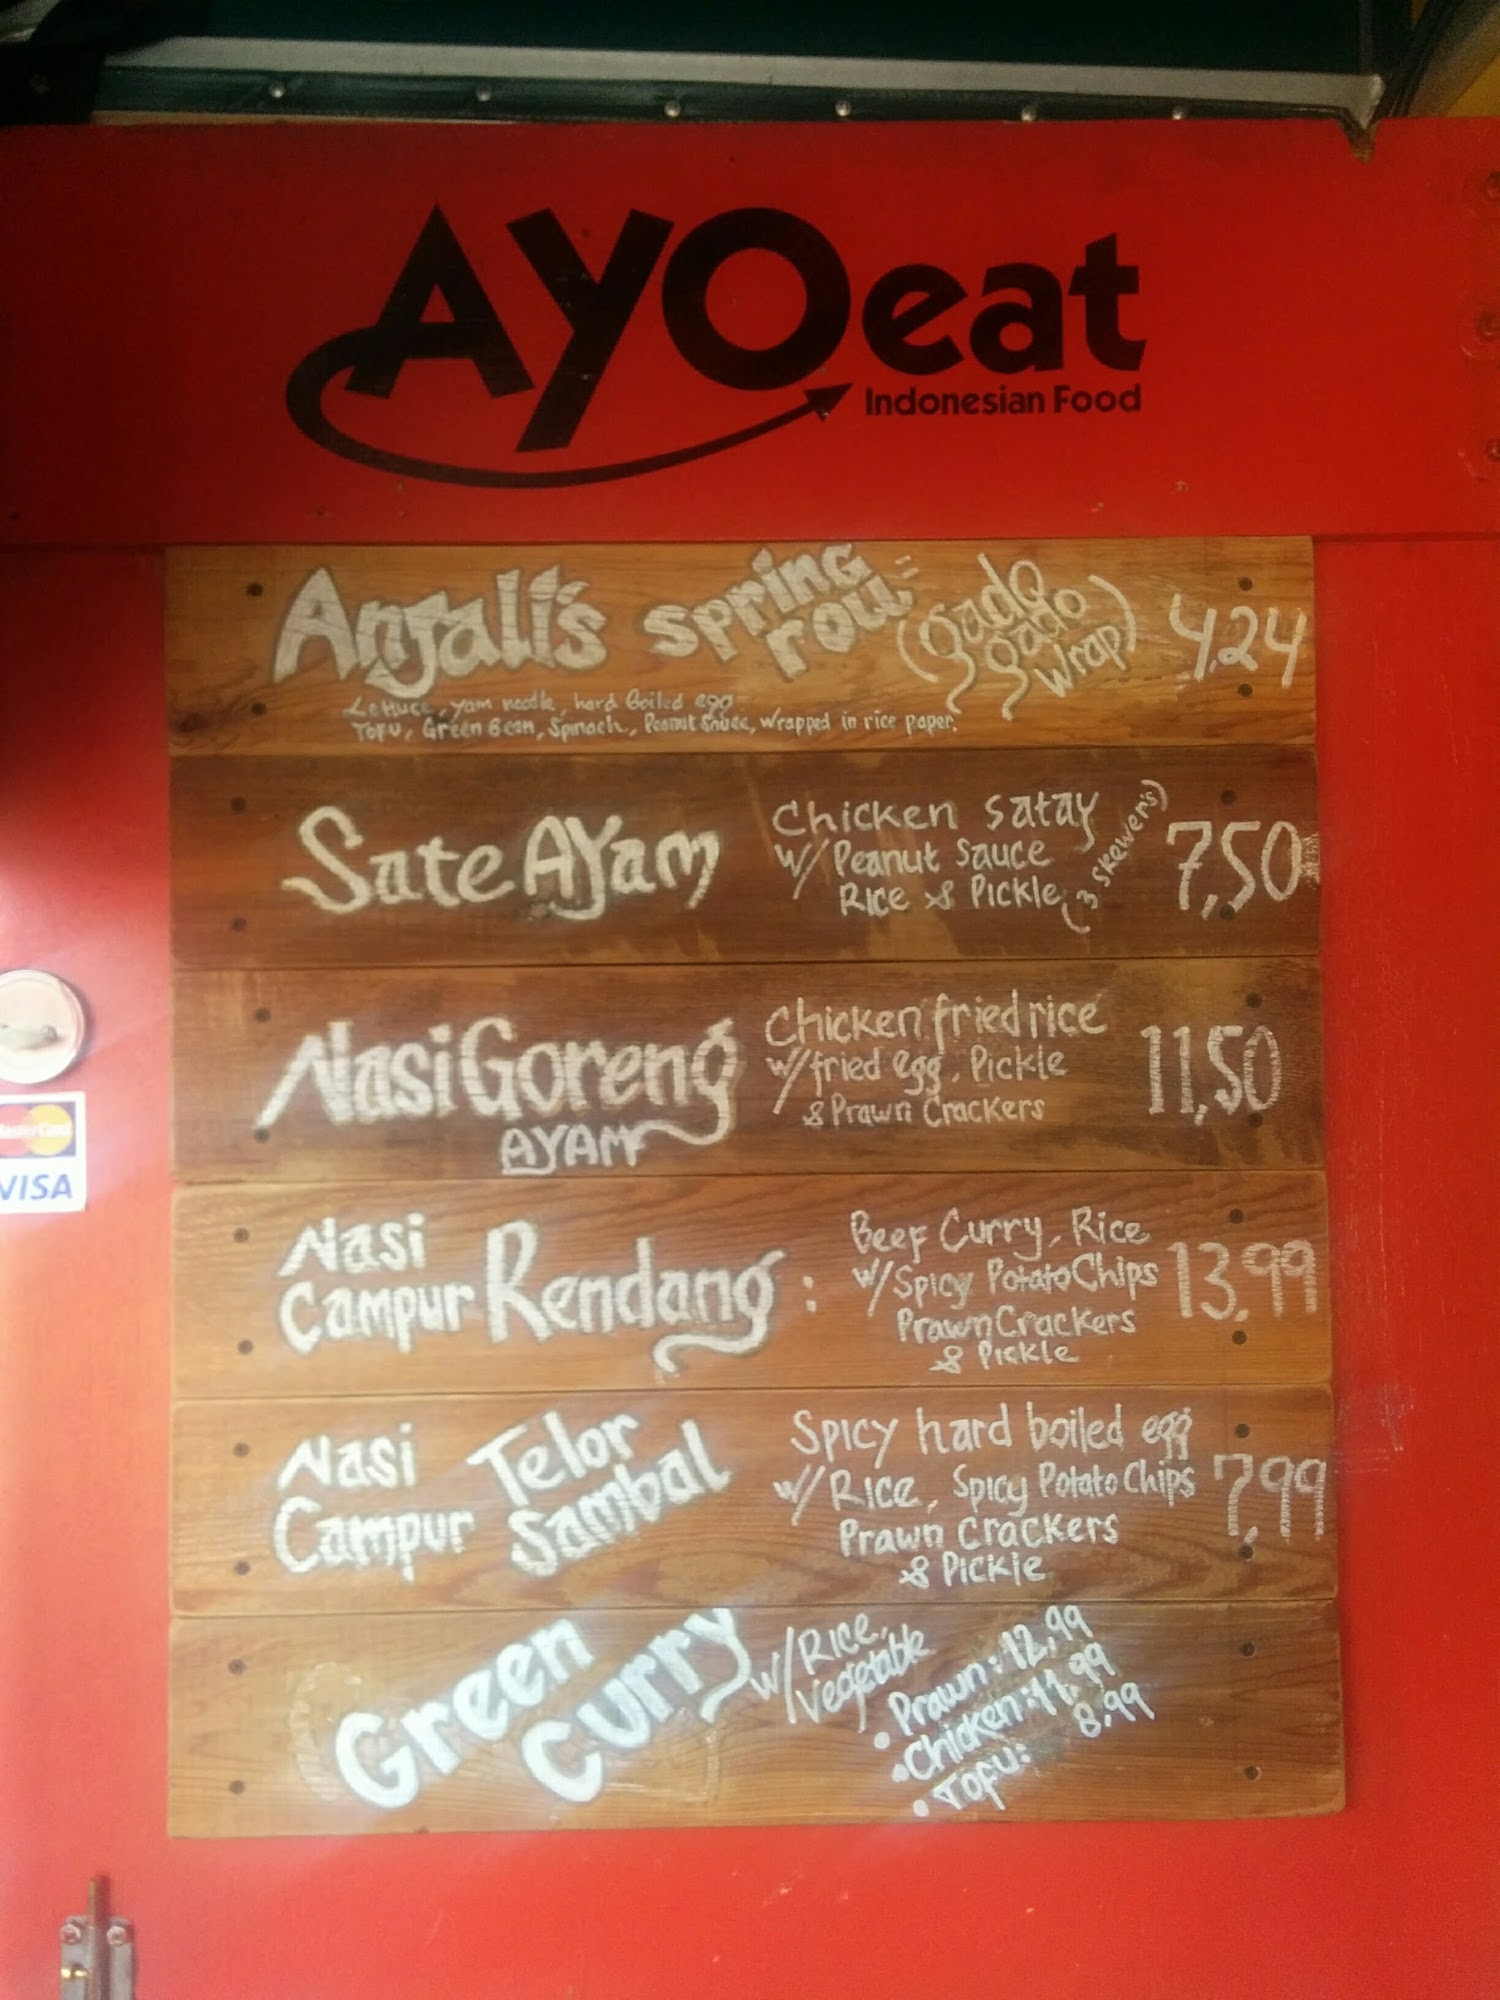 AYOeat
Indonesian Food
Anjali's spring roll (gado gado wrap) 4,24
Lettuce, yam noodle, hard boiled egg
Tofu, Green Bean, Spinach, Peanut Sauce, wrapped in rice paper.
Sate Ayam
Chicken satay
w/ Peanut Sauce
Rice & Pickle (3 skewer's)
7,50
Nasi Goreng
AYAM
Chicken fried rice
w/ fried egg, Pickle
& Prawn Crackers
11,50
Nasi
Campur Rendang :
Beef Curry, Rice
w/ Spicy Potato Chips
Prawn Crackers
& Pickle
13,99
Nasi
Campur
Telor
Sambal
Spicy hard boiled egg
w/ Rice, Spicy Potato Chips
Prawn Crackers
& Pickle
7,99
Green
Curry
w/ Rice,
Vegetable
• Prawn: 12,99
• Chicken: 11,99
• Tofu: 8,99
MasterCard
VISA